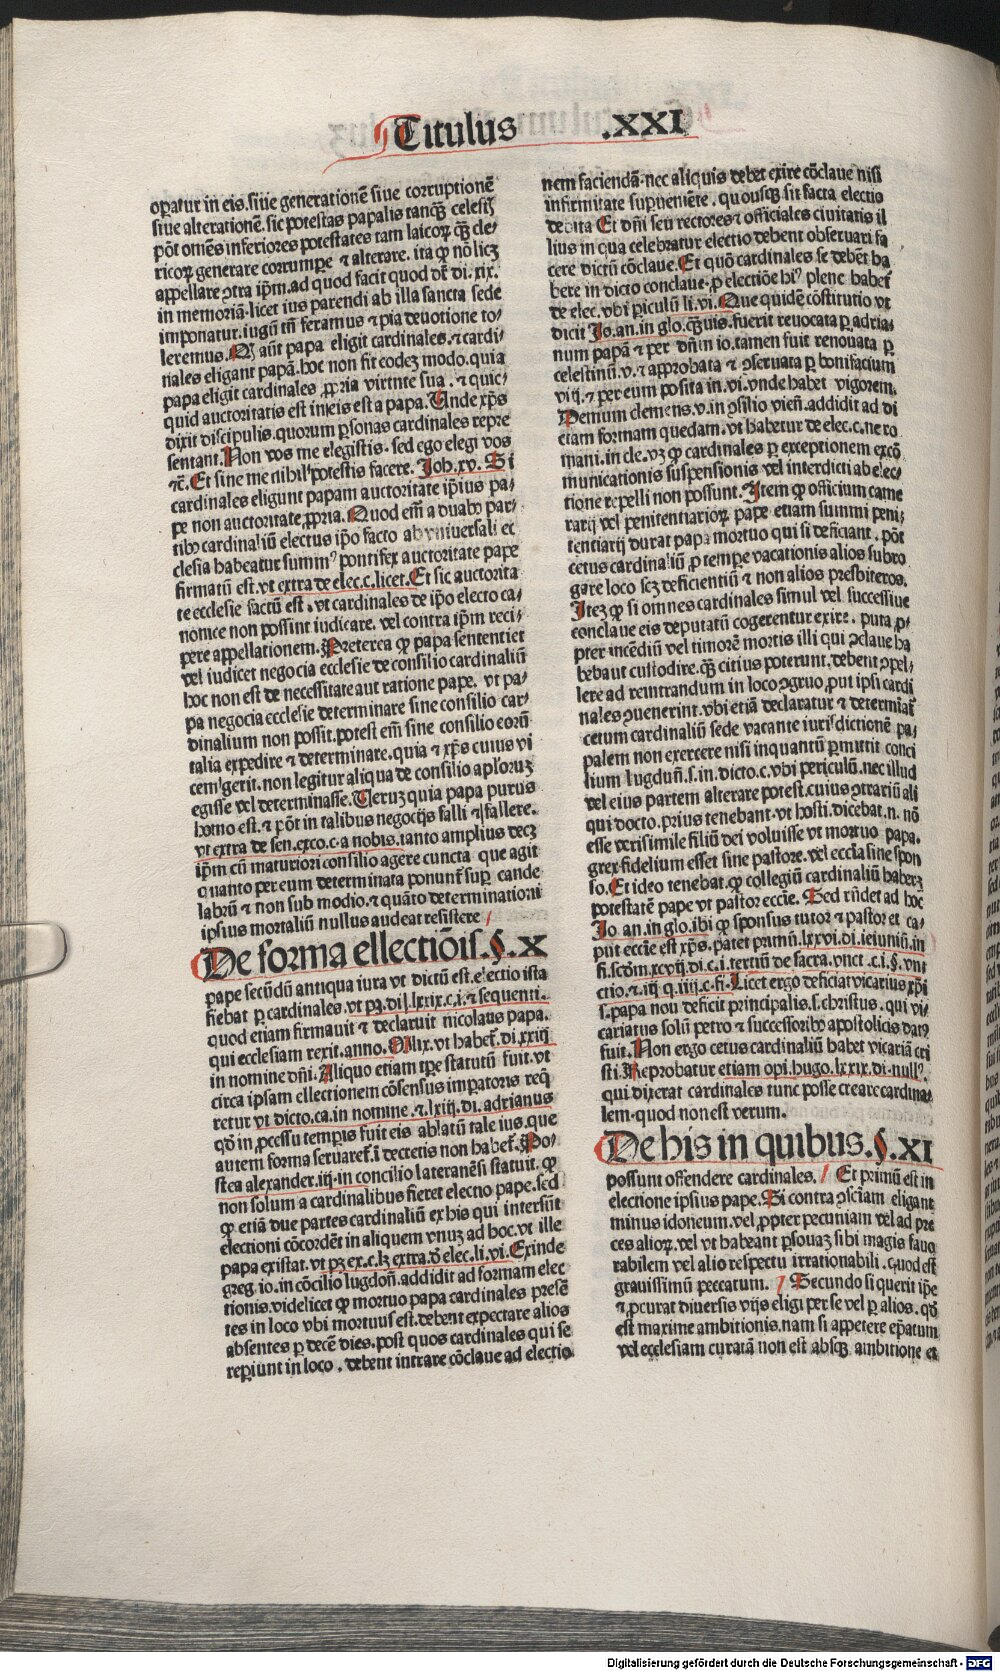 Titulus .XXI
operatur in eis. siue generationē siue corruptionē
siue alterationē. sic potestas papalis tanq̄ celestis
pōt omēs inferiores potestates tam laicoꝝ q̄ȝ cle⸗
ricoꝝ generare corrumpere ⁊ alterare. ita ꝙ nō licȝ
appellare ꝯtra ip̄m. ad quod facit quod dr̄ di. xix.
in memoriā. licet ius parendi ab illa sancta sede
imponatur. iugū tn̄ feramus ⁊ pia deuotione to⸗
leremus. aūt papa eligit cardinales. ⁊ cardi⸗
nales eligant papā. hoc non fit codeȝ modo. quia
papa eligit cardinales ꝓpria virtnte sua . ⁊ quic⸗
quid auctoritatis est in eis est a papa. Unde xp̄s
dixit discipulis. quorum ꝑsonas cardinales repre
sentant. Non vos me elegistis. sed ego elegi vos
⁊c̄. Et sine me nihil potestis facere. Joh. xv. Si
cardinales eligunt papam auctoritate ip̄ius pa⸗
pe non auctoritate ꝓpria. Quod em̄ a duabꝰ par⸗
tibꝰ cardinaliū electus ip̄o facto ab vniuersali ec
clesia habeatur summꝰ pontifex auctoritate pape
firmatū est. vt extra de elec. c. licet. Et sic auctorita
te ecclesie factū est . vt cardinales de ip̄o electo ca⸗
nonice non possint iudicare. vel contra ip̄m reci⸗
pere appellationem. Preterea ꝙ papa sententiet
vel iudicet negocia ecclesie de consilio cardinaliū
hoc non est de necessitate aut ratione pape. vt pa⸗
pa negocia ecclesie determinare sine consilio car⸗
dinalium non possit. potest em̄ sine consilio eorū
talia expedire ⁊ determinate. quia ⁊ xp̄s cuius vi
cem gerit. non legitur aliqua de consilio apl̄oruȝ
egisse vel determinasse. Ueruȝ quia papa purus
homo est. ⁊ pōt in talibus negocijs falli ⁊ fallere.
vt extra de sen. exco. c. a nobis. tanto amplius decȝ
ip̄m cū maturiori consilio agere cuncta que agit
quanto per eum determinata ponunt̄ suꝑ cande
labrū ⁊ non sub modio. ⁊ quāto determinationi
ipsius mortaliū nullus audeat resistere
De forma ellectiōis. §. X
pape secūdū antiqua iura vt dictū est. electio ista
fiebat ꝑ cardinales. vt pȝ. di. lxxix. c. i. ⁊ sequenti.
quod etiam firmauit ⁊ declaruit nicolaus papa.
qui ecclesiam rexit. anno. Mlix. vt habet̄. di. xxiij
in nomine dn̄i. Aliquo etiam tp̄e statutū fuit. vt
circa ipsam ellectionem cōsensus imꝑatoris req̄
retur vt dicto. ca. in nomine. ⁊. lxiij. di. adrianus
qd̄ in ꝓcessu temꝑis fuit eis ablatū tale ius. que
autem forma seruaret̄. i decretis non habet̄. Po⸗
stea alexander. iij. in concilio lateranēsi statuit. ꝙ
non solum a cardinalibus fieret electio pape. sed
ꝙ etiā due partes cardinaliū ex his qui intersūt
electioni cōcordēt in aliquem vnuȝ ad hoc. vt ille
papa existat. vt pȝ ex. c. lȝ extra. d̄ elec. li. vi. Exinde
greg. io. in cōcilio lugdoñ. addidit ad formam elec
tionis. videlicet ꝙ mortuo papa cardinales presē
tes in loco vbi mortuus est. debent expectare alios
absentes ꝑ decē dies. post quos cardinales qui se
reꝑiunt in loco . debent intrare cōclaue ad electio
nem faciendā. nec aliquis debet exire cōclaue nisi
infirmitate suꝑueniēte. quousqȝ sit facta electio
debita Et dn̄i seu rectores ⁊ officiales ciuitatis il
lius in qua celebratur electio debent obseruari fa
cere dictū cōclaue. Et quō cardinales se debēt ha
bere in dicto conclaue. ꝓ electiōe hꝰ plene habet̄
de elec. vbi ꝑiculū. li. vi. Que quidē cōstitutio vt
dicit Jo. an. in glo. q̄uis. fuerit reuocata ꝑ adria⸗
num papā ⁊ per dn̄m io. tamen fuit renouata ꝑ
celestinū. v. ⁊ approbata ⁊ ꝯseruata ꝑ bonifacium
viij. ⁊ per eum posita in. vi. vnde habet vigorem.
Demum clemens. v. in ꝯsilio vieñ. addidit ad di
ctam formam quedam. vt habetur de elec. c. ne ro
mani. in cle. vȝ ꝙ cardinales ꝑ exceptionem excō
municationis suspensionis vel interdicti ab elec⸗
tione repelli non possunt. Item ꝙ officium came
rarij vel penitentiarioꝝ pape etiam summi peni⸗
tentiarij durat papa mortuo qui si deficiant . pōt
cetus cardinaliū ꝓ tempe vacationis alios subro
gare loco scȝ deficientiū ⁊ non alios presbiteros.
Iteȝ ꝙ si omnes cardinales simul vel successiue
conclaue eis deputatū cogerentur exire . puta ꝓ⸗
pter incēdiū vel timorē mortis illi qui ꝯclaue ha
bebant custodire. q̄ȝ citius poterunt. debent ꝯpel⸗
lere ad reintrandum in loco ꝯgruo ꝓut ipsi cardi
nales ꝯuenerint. vbi etiā declaratur ⁊ determīat̄
cetum cardinaliū sede vacante iurisdictionē pa⸗
palem non exercere nisi inquantū ꝑmittit conci
lium lugduñ. s. in. dicto. c. vbi periculū. nec illud
vel eius partem alterare potest. cuius ꝯtrariū ali
qui docto. prius tenebant. vt hosti. dicebat. n. nō
esse verisimile filiū dei voluisse vt mortuo papa.
grex fidelium esset sine pastore. vel ecclīa sine spon
so. Et ideo tenebat. ꝙ collegiū cardinaliū haberȝ
potestatē pape vt pastor eccīe. Sed rn̄det ad hoc
Jo an. in glo. ibi ꝙ sponsus tutor ⁊ pastor et ca⸗
put eccīe est xp̄s. patet primū. lxxvi. di. ieiuniū. in
fi. scd̄m. xcvij. di. c. i. tertiū de sacra. vnct . c. i. §. vn⸗
ctio. ⁊. iij q. iiij. c. fi. Licet ergo deficiat vicarius xp̄i
s. papa non deficit principalis. s. christus . qui vi⸗
cariatus solū petro ⁊ successoribꝰ apostolicis datꝰ
fuit. Non ergo cetus cardinaliū habet vicariā cri
sti. Reprobatur etiam opi. hugo. lxxix. di. nullꝰ.
qui dixerat cardinales tunc posse creare cardina⸗
lem. quod non est verum.
De his in quibus. §. XI
possunt offendere cardinales. Et primū est in
electione ipsius pape. Si contra ꝯsciam eligant
minus idoneum. vel ꝓpter pecuniam vel ad pre
ces alioꝝ. vel vt habeant ꝑsonaȝ sibi magis fauo
rabilem vel alio respectu irrationabili . quod est
grauissimū peccatum. Secundo si querit ip̄e
⁊ ꝓcurat diuersis vijs eligi per se vel ꝑ alios. qd̄
est maxime ambitionis. nam si appetere ep̄atum
vel ecclesiam curatā non est absqȝ ambitione et
Digitalisierung gefördert durch die Deutsche Forschungsgemeinschaft - DFG